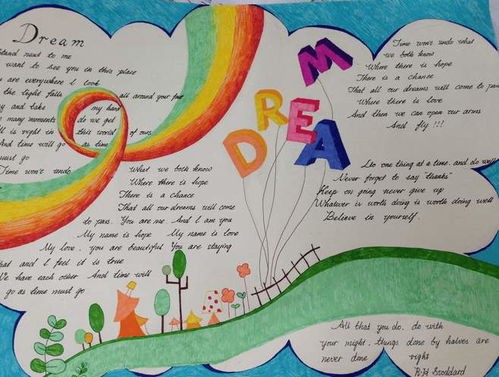 Dream
Stand next to me
want to see you in this place
are everywhere I look
the light falls all around your feet
and take my hand
many moments do we get
all is right in this world of ours
And time will go as time
must go
Time won't undo What we both know
Where there is hope
There is a chance
That all our dreams will come
to pass. You are me And I am you
My name is hope My name is love
My love, you are beautiful You are staying
that and I feel it is true
We have each other And time will
go as time must go
DREAM
Time won't undo what
we both know
Where there is hope
There is a chance
That all our dreams will come to pass
Where there is love
And then we can open our arms
And fly !!!
Do one thing at a time, and do well
Never forget to say "thanks"
Keep on going never give up
Whatever is worth doing is worth doing well
Believe in yourself.
All that you do, do with
your might, things done by halves are
never done right
R.H. Stoddard